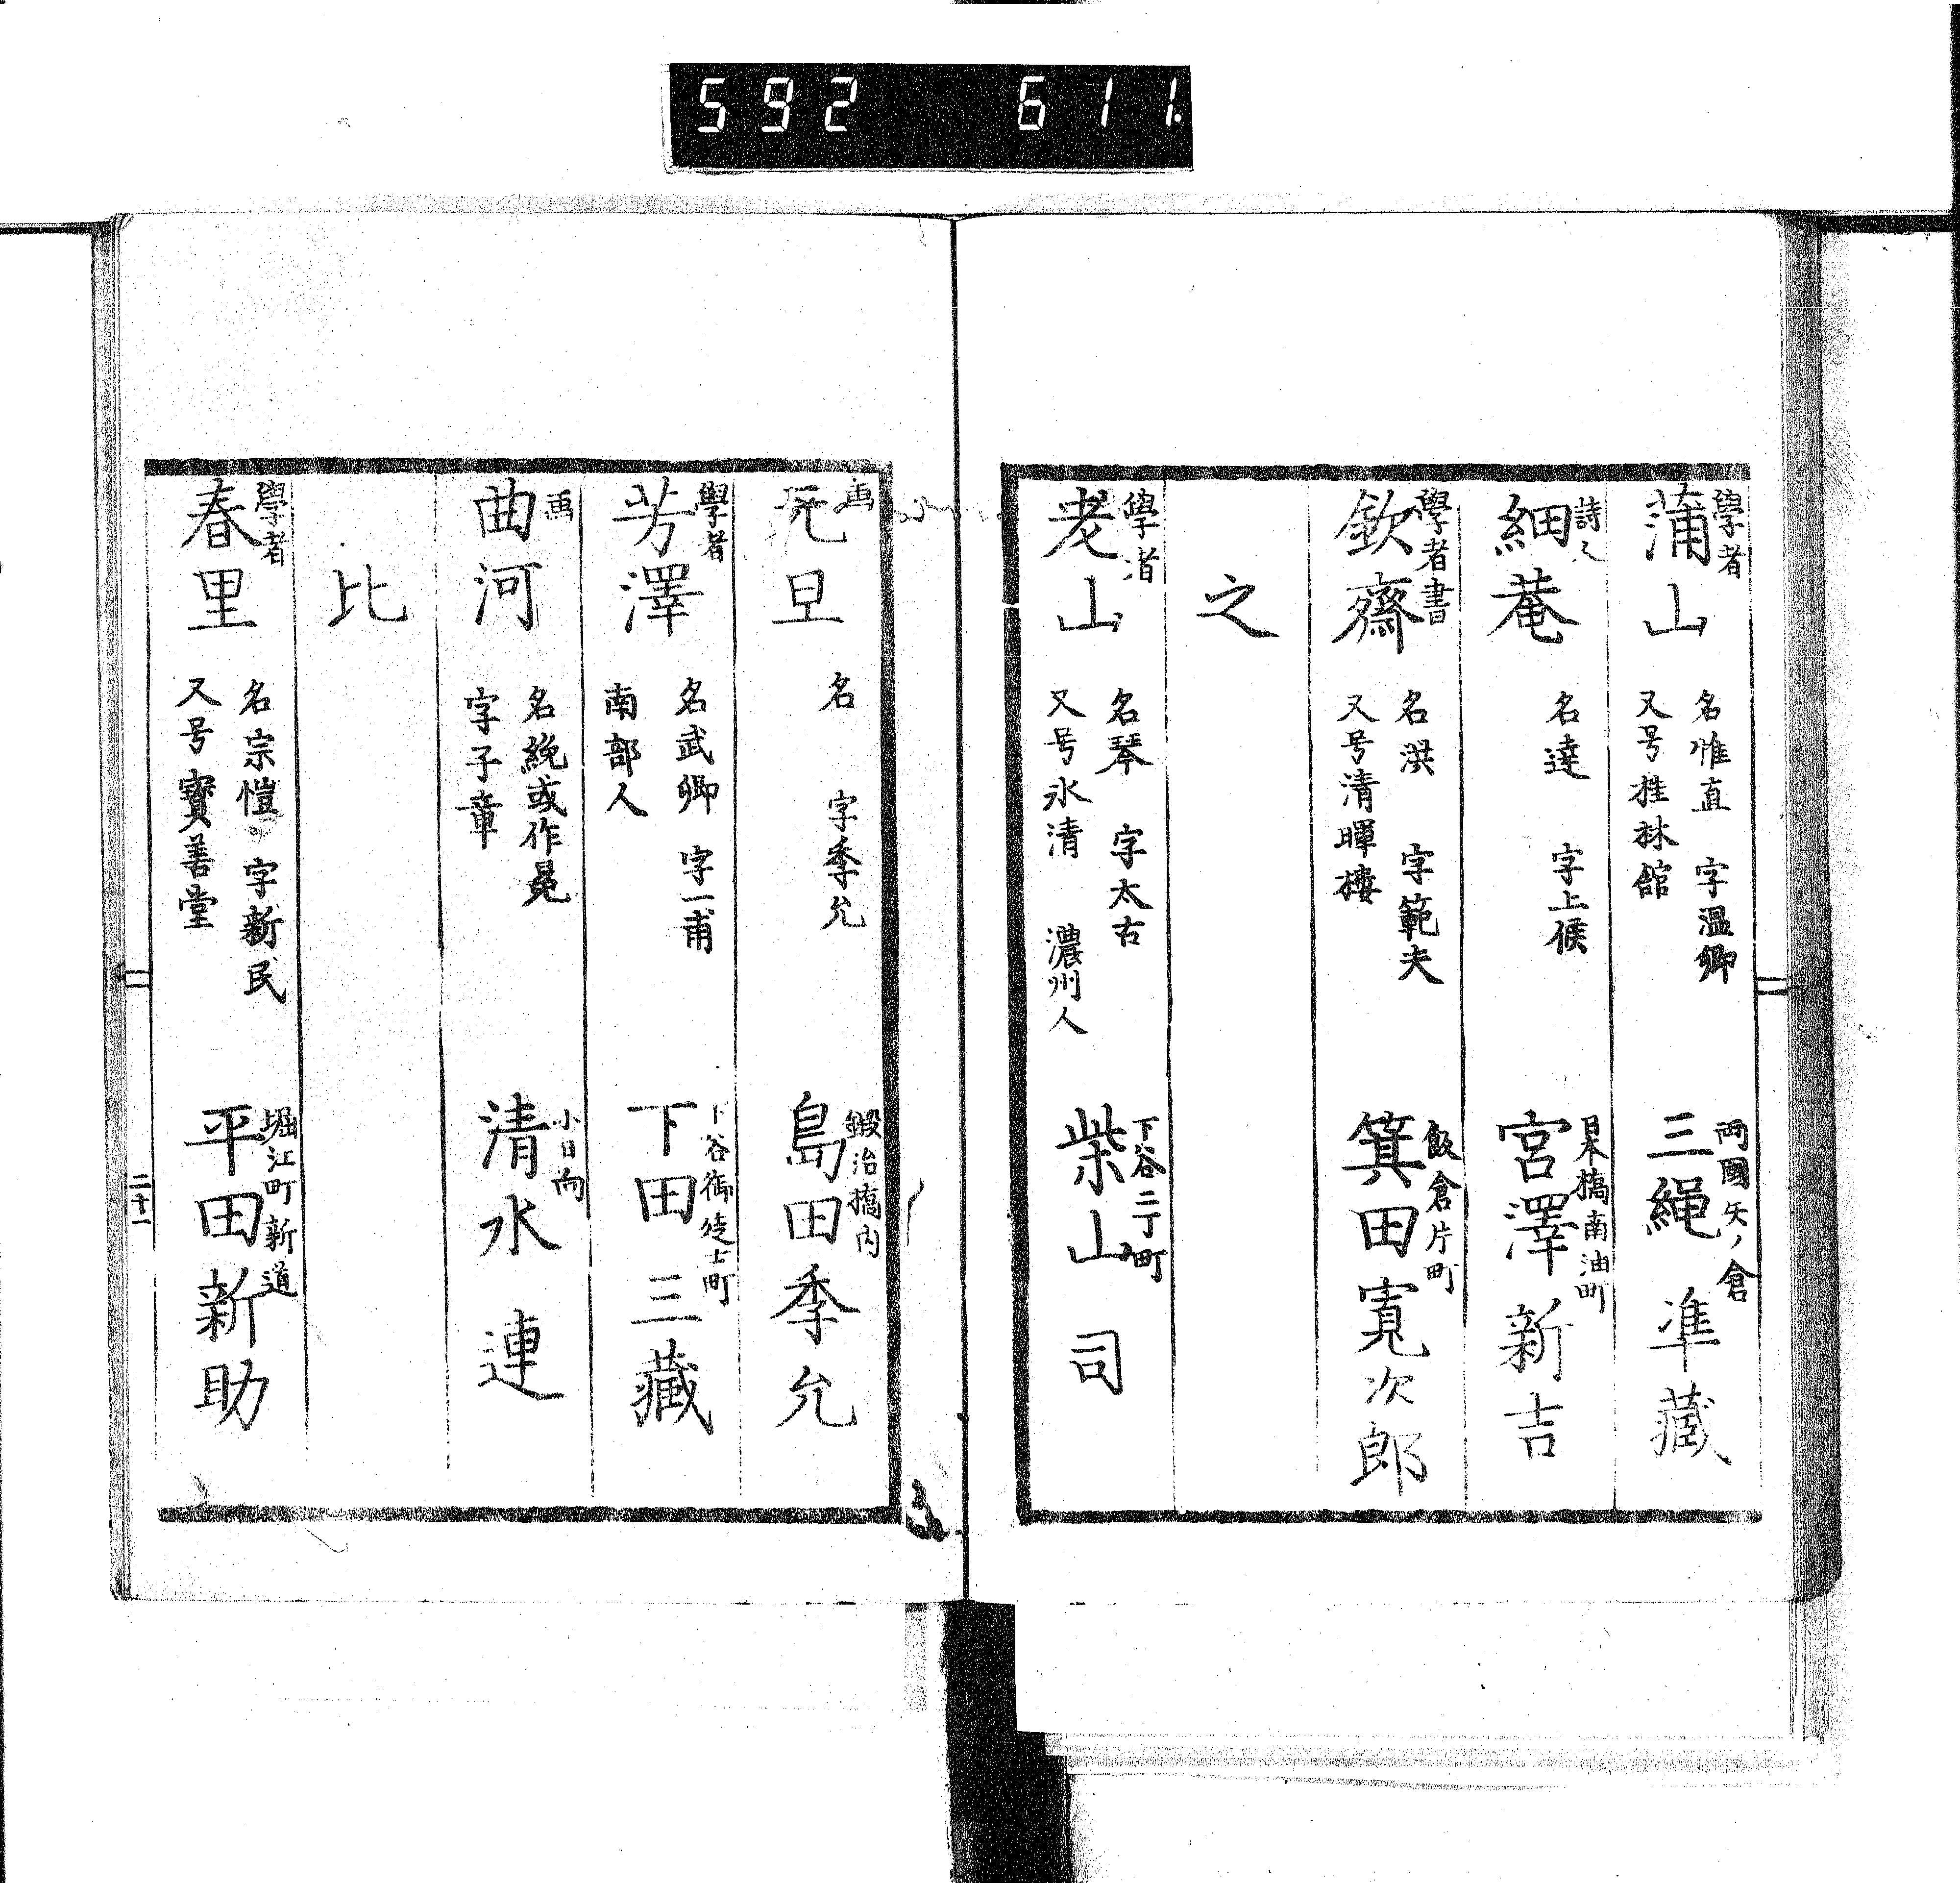 592 611
學者
蒲山
名惟直 字溫卿
又号桂林舘
両國矢ノ倉
三縄準藏
詩人
細菴
名達 字上候
日本橋南油町
宮澤新吉
學者書
欽齋
名洪 字範夫
又号清暉樓
飯倉片町
箕田寛次郎
之
學者
老山
名琴 字太古
又号氷清 濃州人
下谷二丁町
柴山司
画
元旦
名 字季允
鍛冶橋内
島田季允
學者
芳澤
名武卿 字一甫
南部人
下谷御徒士町
下田三藏
画
曲河
名絻或作冕
字子章
小日向
清水連
比
學者
春里
名宗愷 字新民
又号寶善堂
堀江町新道
平田新助
二十一